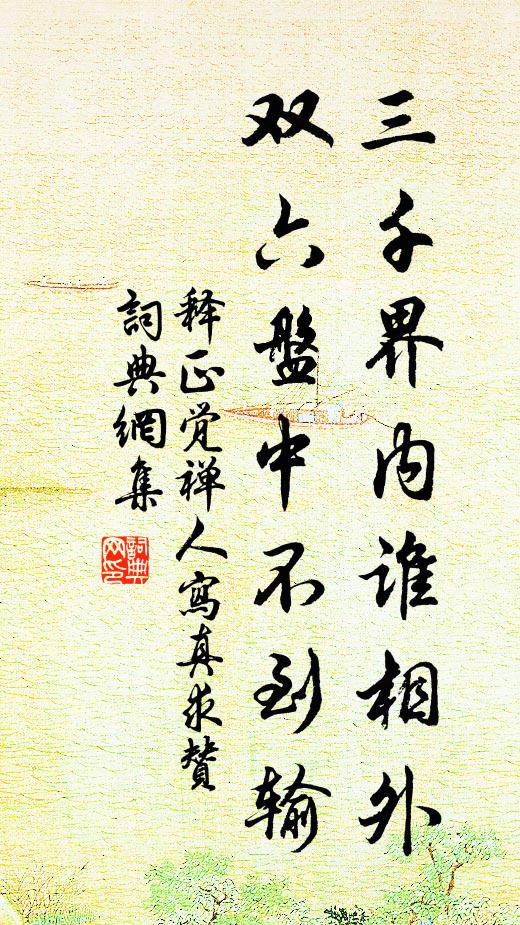 三千界内谁相外
双六盤中不到输
释正觉禅人寫真求贊
詞典網集
詞典网印